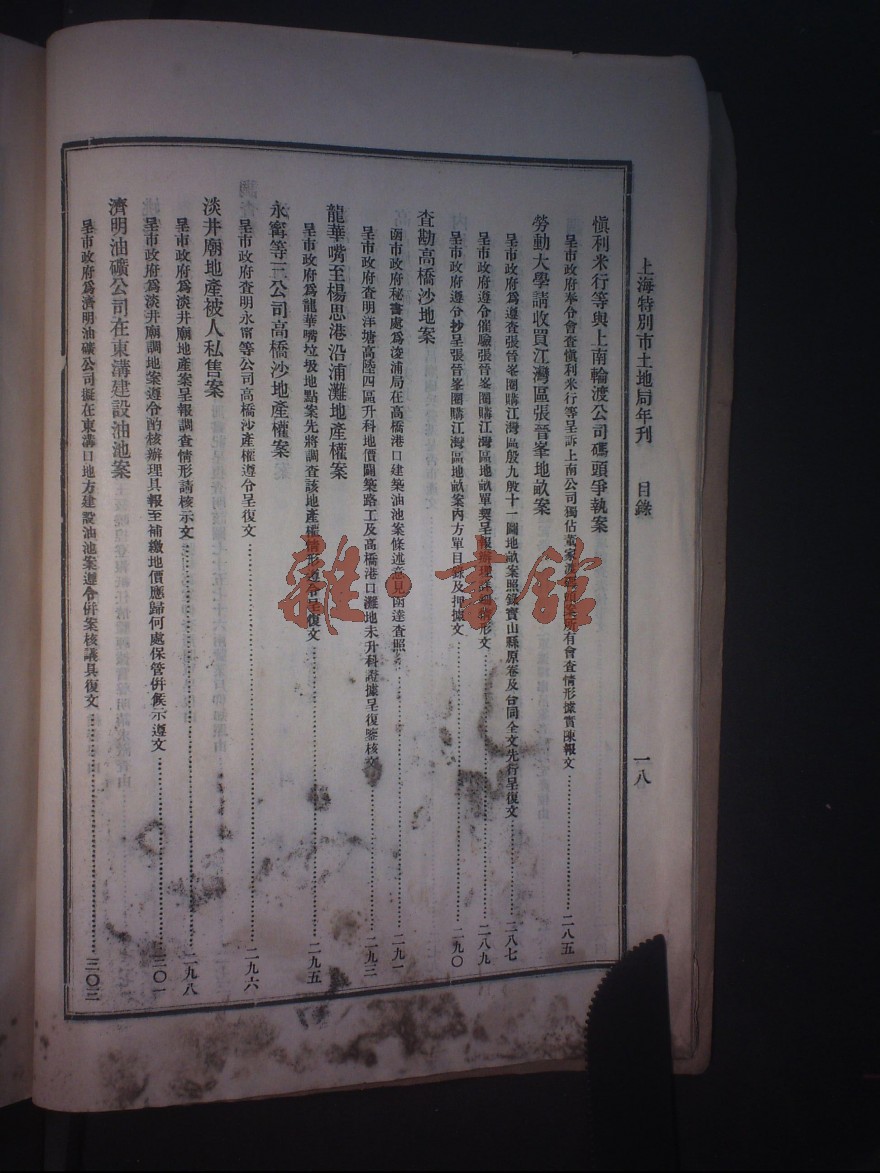 上海特別市土地局年刊　目錄　一八
愼利米行等與上南輪渡公司碼頭爭執案
呈市政府奉令會查愼利米行等呈訴上南公司獨佔董家渡有會查情形據實陳報文……二八五
勞動大學請收買江灣區張晉峯地畝案
呈市政府爲遵查張晉峯圈購江灣區殷九殷十一圖地畝案照錄寶山縣原卷及合同全文先行呈復文……二八七
呈市政府遵令催驗張晉峯圈購江灣區地畝單契呈報辦理情形文……二八九
呈市政府遵令抄呈張晉峯圈購江灣區地畝案內方單目錄及押據文……二九〇
查勘高橋沙地案
函市政府秘書處爲浚浦局在高橋港口建築油池案條述意見函達查照……二九一
呈市政府查明洋塘高陸四區升科地價闢築路工及高橋港口灘地未升科證據呈復鑒核文……二九三
龍華嘴至楊思港沿浦灘地產權案
呈市政府爲龍華嘴垃圾地點案先將調查該地產權情形遵令呈復文……二九五
永甯等三公司高橋沙地產權案
呈市政府查明永甯等公司高橋沙產權遵令呈復文……二九六
淡井廟地產被人私售案
呈市政府爲淡井廟地產案呈報調查情形請核示文……二九八
呈市政府爲淡井廟調地案遵令酌核辦理具報至補繳地價應歸何處保管併候示遵文……三〇一
濟明油礦公司在東溝建設油池案
呈市政府爲濟明油礦公司擬在東溝口地方建設油池案遵令併案核議具復文……三〇三
雜·書館